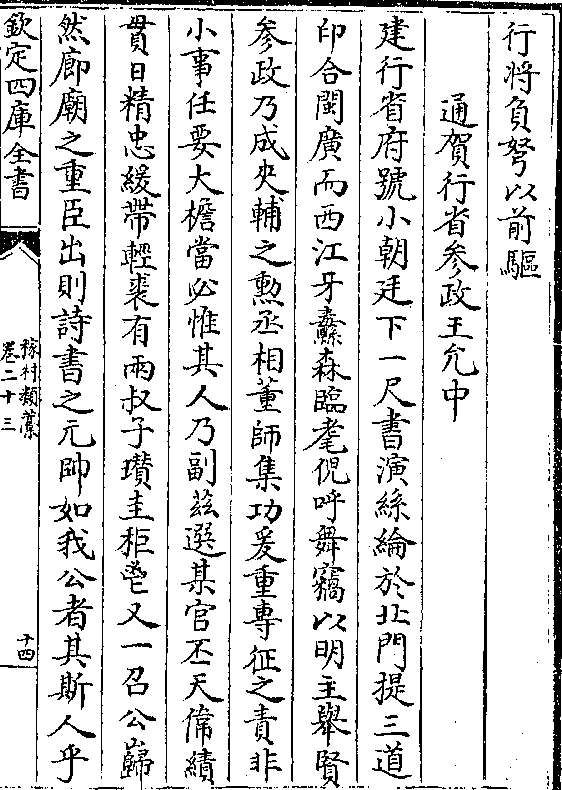 行將負弩以前驅
通賀行省參政王允中
建行省府號小朝廷下一尺書演絲綸於北門提三道
印合閩廣而西江牙纛森臨耄倪呼舞竊以明主舉賢
參政乃成夾輔之勲丞相董師集功爰重專征之責非
小事任要大擔當必惟其人乃副兹選某官丕天偉績
貫日精忠緩帶輕裘有兩叔子瓚圭秬鬯又一召公巋
然廊廟之重臣出則詩書之元帥如我公者其斯人乎
欽定四庫全書
稼村類藁
卷二十三
十四